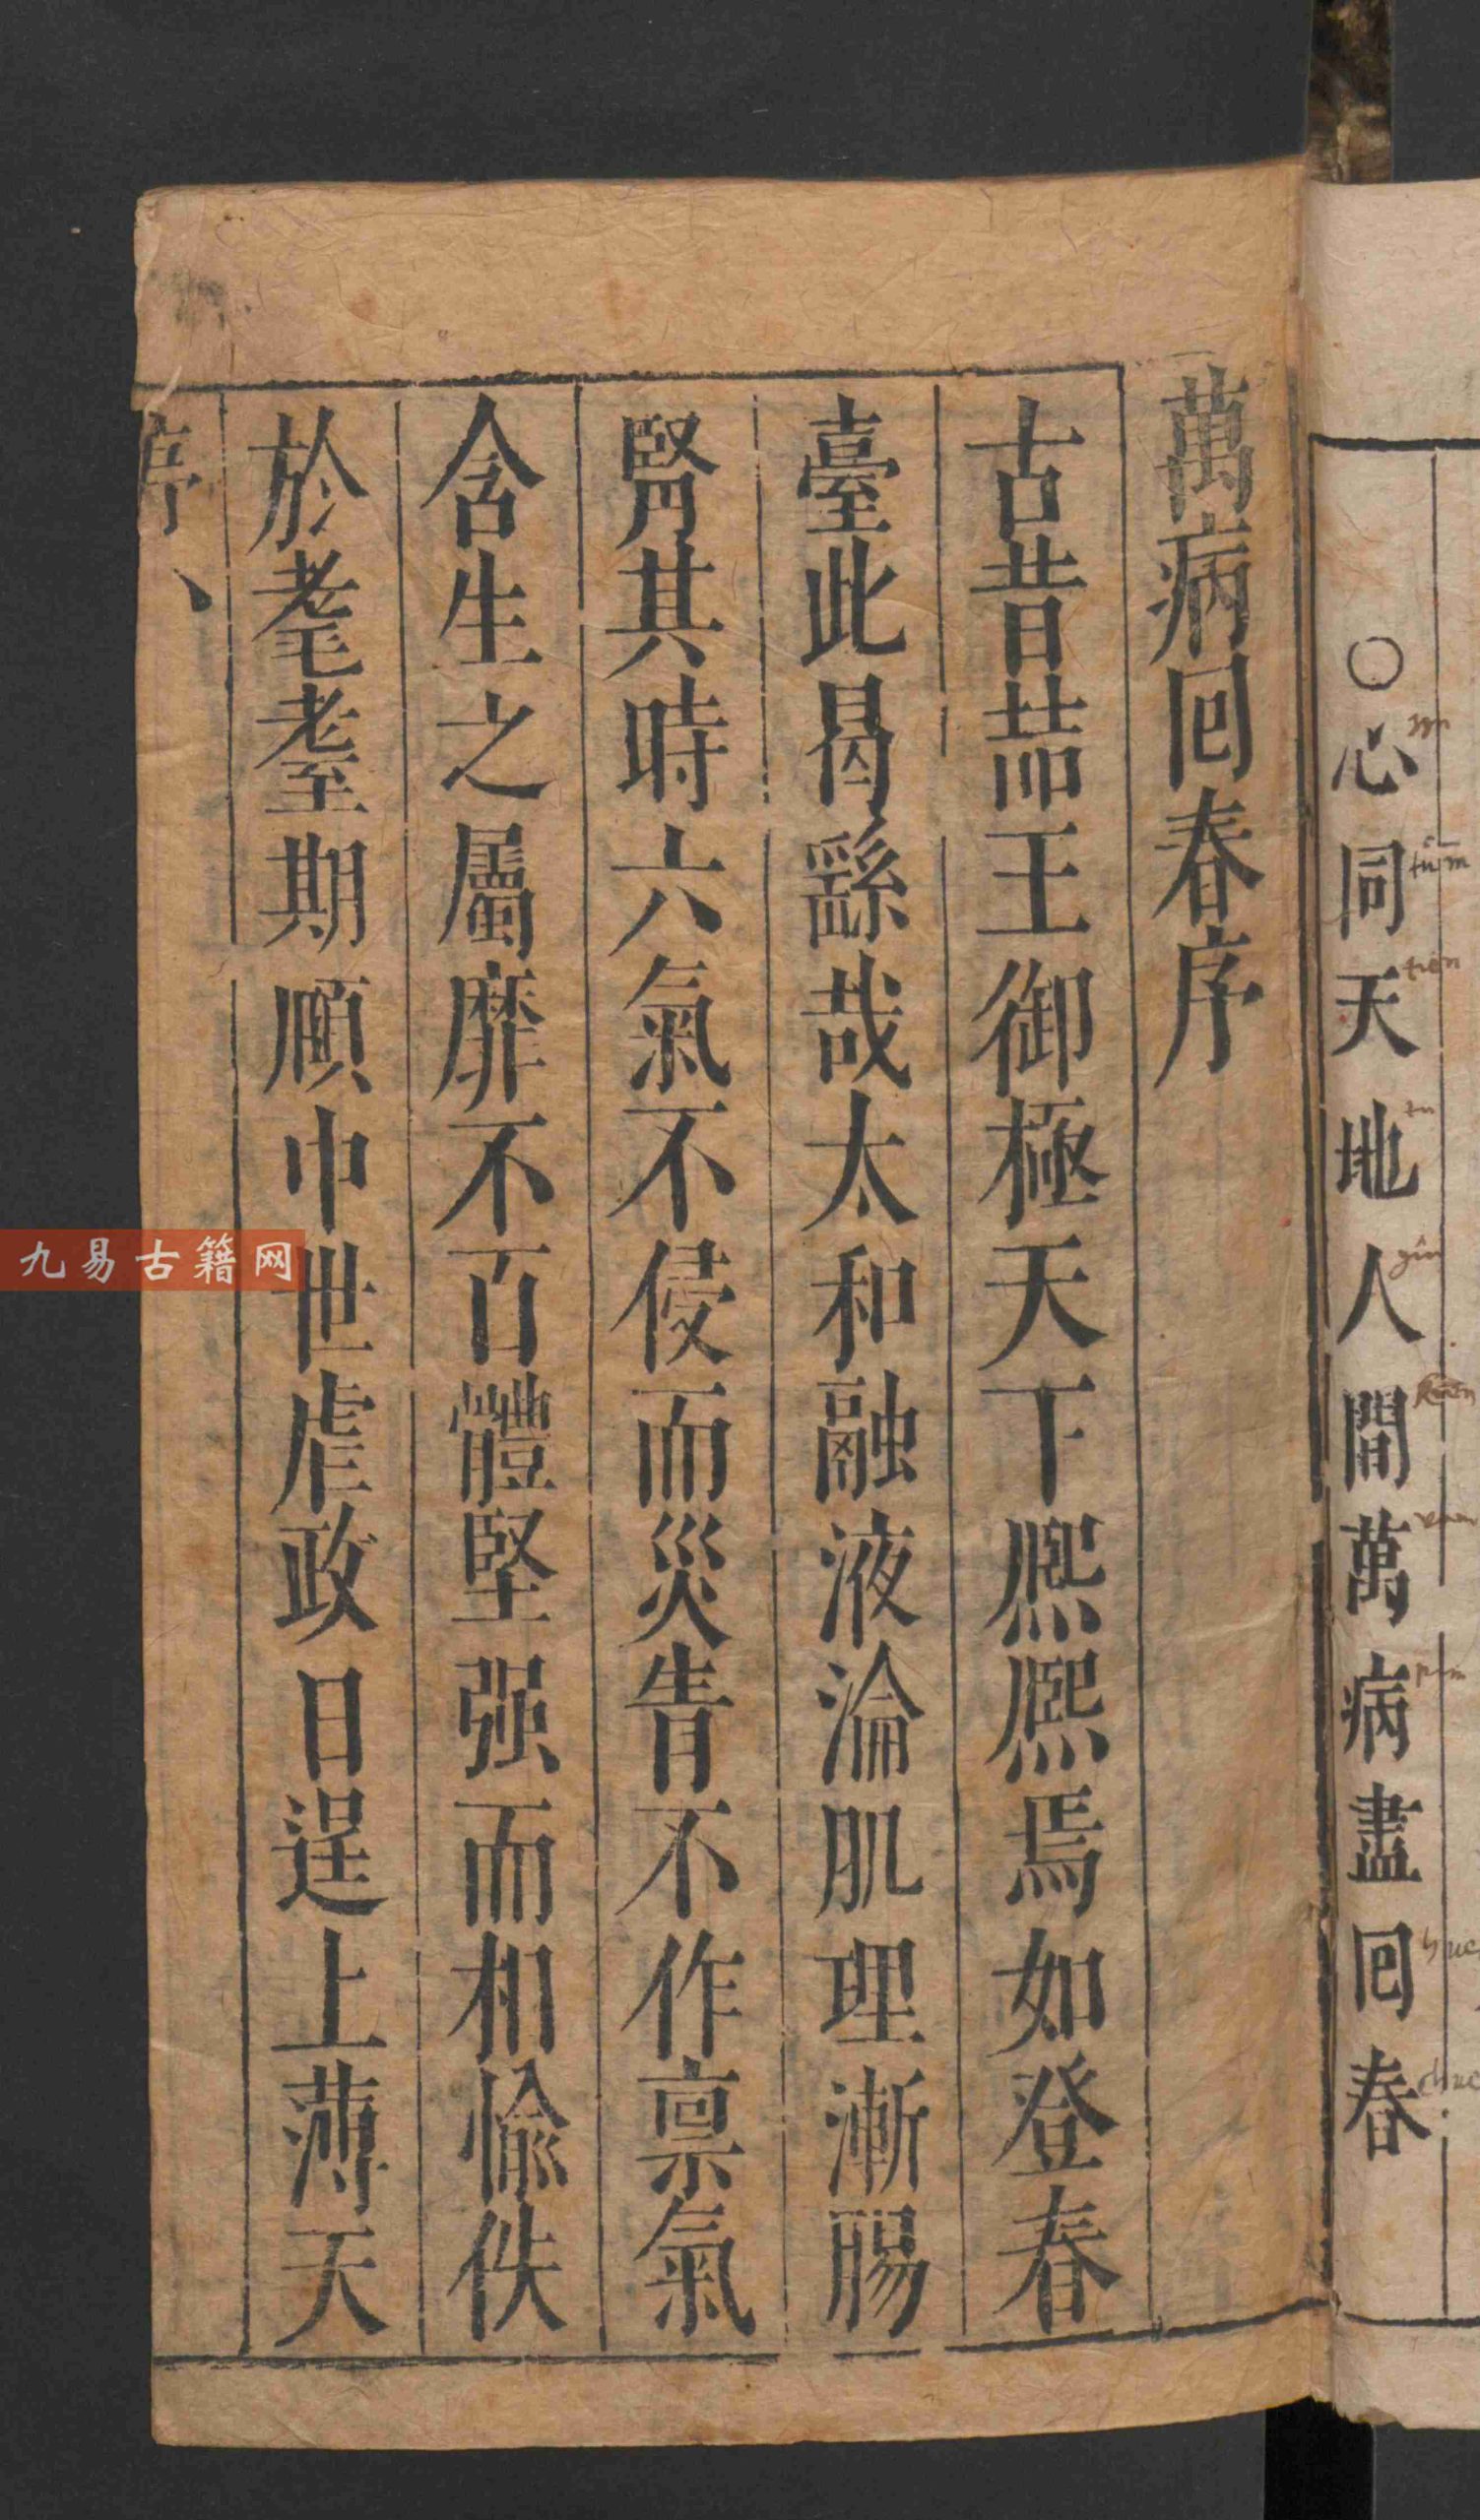 ○心同天地人間萬病盡囘春
萬病囘春序
古昔喆王御極天下熈熈焉如登春
臺此曷繇哉太和融液淪肌理漸腸
腎其時六氣不侵而災眚不作禀氣
含生之屬靡不百體堅强而相愉佚
於耄耋期頤中世虐政日逞上薄天
序
九易古籍网